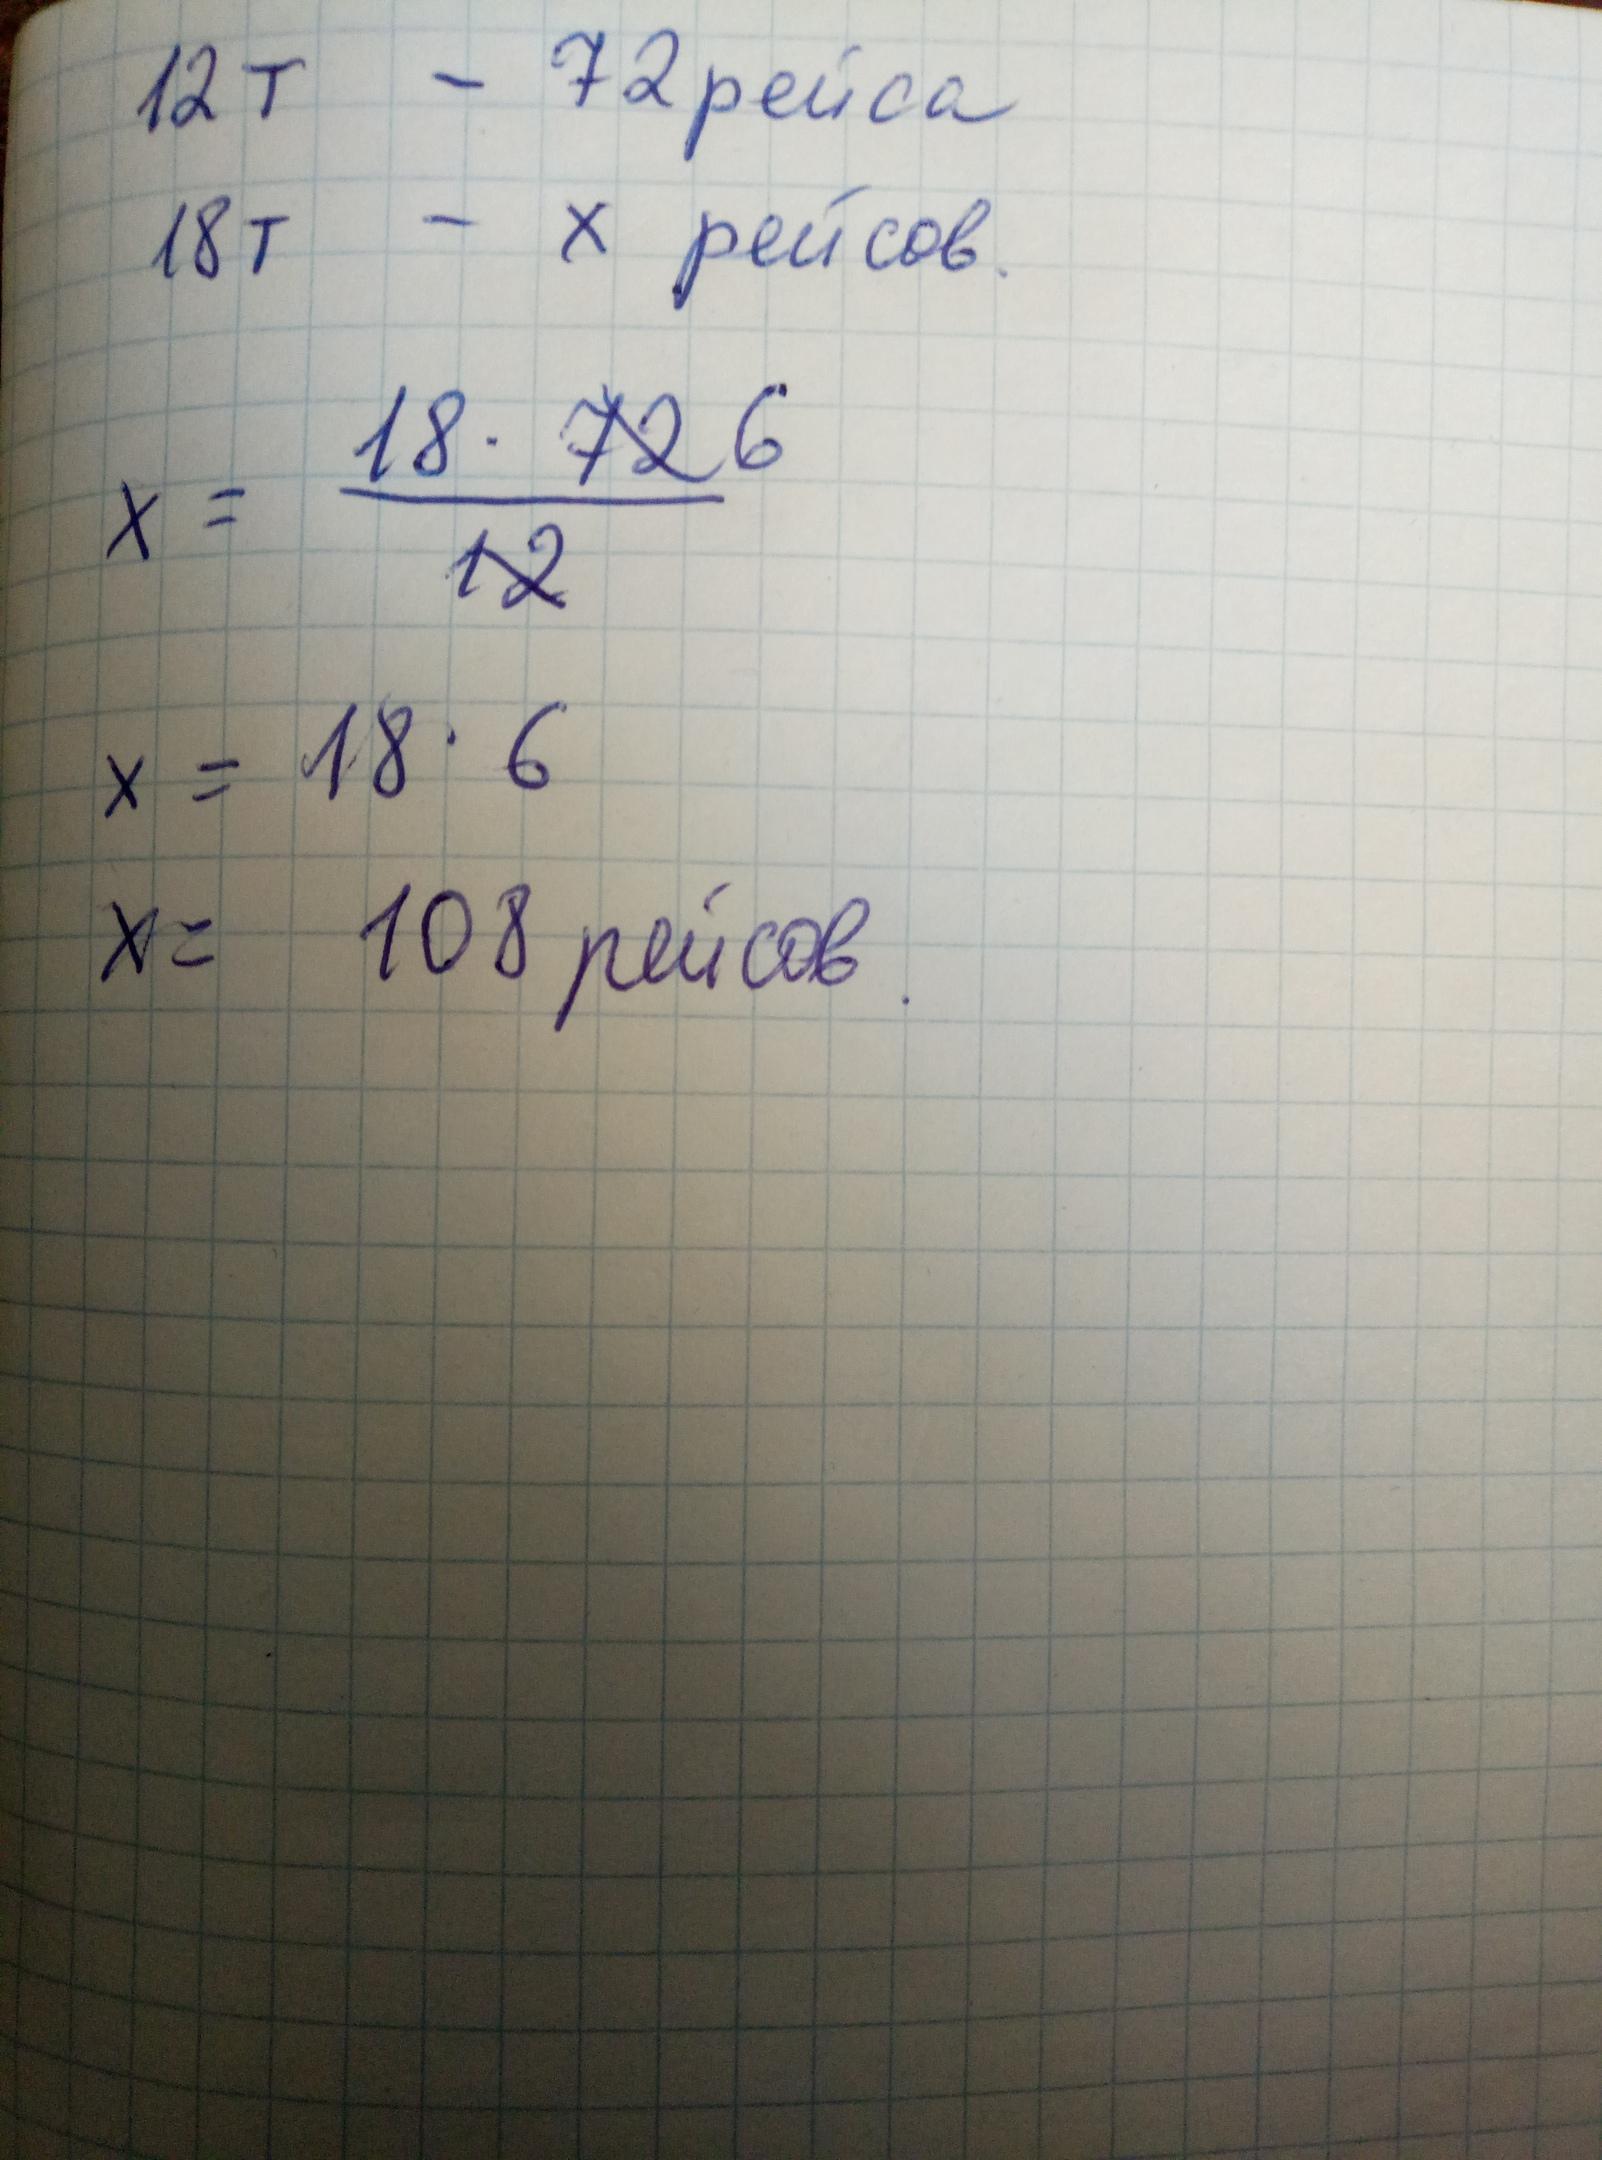 12т - 72 рейса
18т - х рейсов.
х = 18 · 72 6 / 12
х = 18 · 6
х = 108 рейсов.